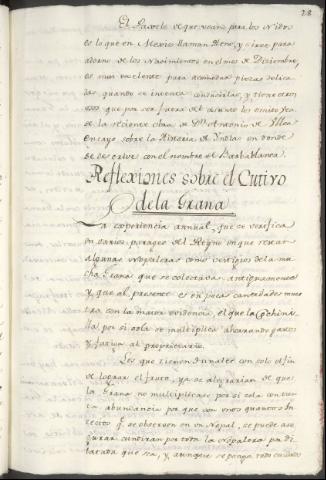 28
El Pascle se que usan para los Nidos
es la que en Mexico llaman Heno, y sirve para
adorno de los Nacimientos en el mes de Diciembre,
es muy excelente para acomodar piezas delica
das quando se intenta conducirlas, y tiene otros
usos, que por ser fuera del asunto los omito Ya
de la reciente obra de Dn. Antonio de Ulloa
Ensayo sobre la Historia de Yndias en donde
se describe con el nombre de Barbablanca.
Reflexiones sobre el Cutivo
de la Grana
La experiencia annual, que se verifica
en varios parages del Reyno en que restan
algunas Nopaleras como vestigios de la mu
cha Grana que se colectava antiguamente
y que al presente es en pocas cantidades mues
tra con la mayor evidencia, el que la Cochini
lla por si sola se multiplica ahorrando gastos
y fatiga al propietario.
Los que tienen Tunales con solo el fin
de lograr el fruto, ya se alegrarian de que
la Grana no multiplicase por si sola con tan
ta abundancia por que con unos quantos In
secto qe. se observen en un Nopal, se puede ase
gurar cundiran por toda la Nopalera por di
latada que sea, y aunque se ponga todo cuidado